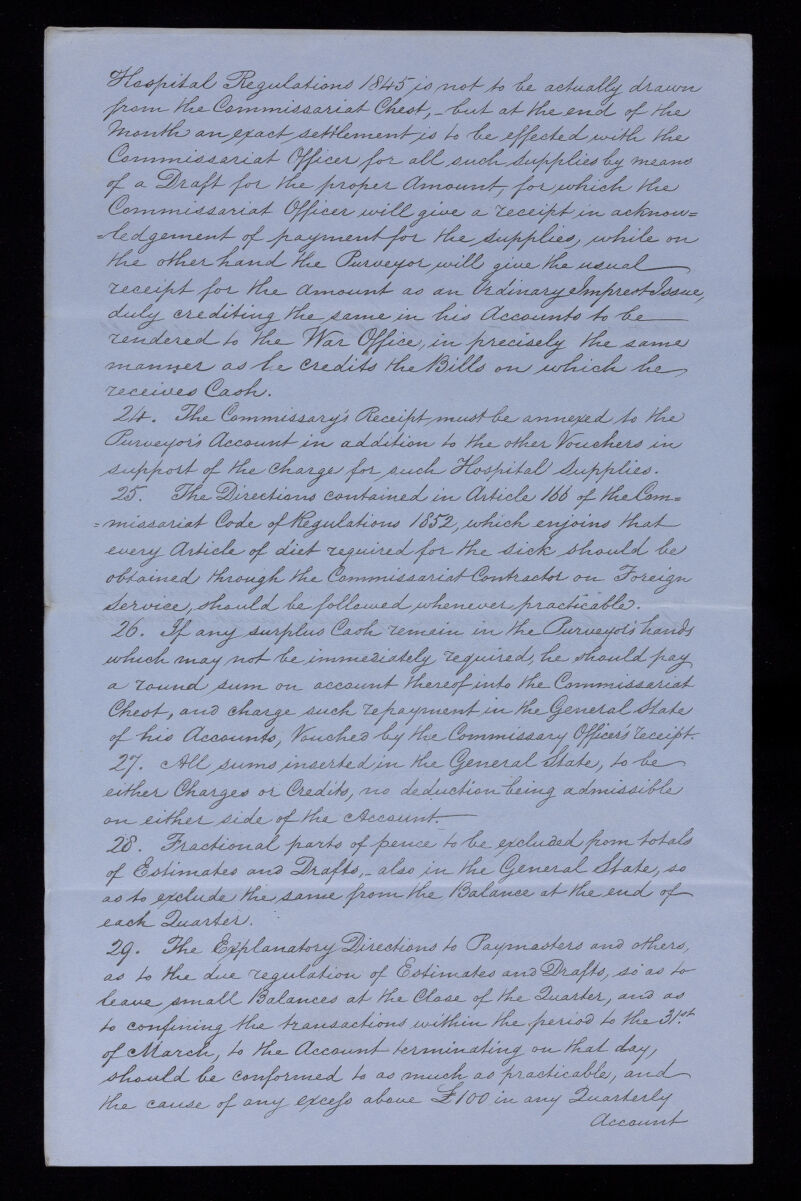 Hospital Regulations 1845 is not to be actually drawn
from the Commissariat Chest, - but at the end of the
Month an exact settlement is to be effected with the
Commissariat Officer for all such supplies by means
of a Draft for the proper Amount, for which the
Commissariat Officer will give a receipt in acknow=
=ledgement of payment for the supplies, while on
the other hand the Purveyor will give the usual
receipt for the amount as an Ordinary Imprest Issue,
duly crediting the same in his Accounts to be
rendered to the War Office, in precisely the same
manner as he credits the Bills on which he
receives Cash.
24. The Commissary's Receipt must be annexed to the
Purveyor's Account in addition to the other Vouchers in
support of the charge for such Hospital Supplies.
25. The Directions contained in Article 166 of the Com=
=missariat Code of Regulations 1852, which enjoins that
every Article of diet required for the sick should be
obtained through the Commissariat Contractor on Foreign
Service, should be followed whenever practicable.
26. If any surplus Cash remain in the Purveyor's hands
which may not be immediately required, he should pay
a round sum on account thereof into the Commissariat
Chest, and charge such repayment in the General State
of his Accounts, Vouched by the Commissary Officers receipt.
27. All sums inserted in the General State, to be
either Charges or Credits, no deduction being admissible
on either side of the Account.
28. Fractional parts of pence to be excluded from totals
of Estimates and Drafts, - also in the General State, so
as to exclude the same from the Balance at the end of
each Quarter.
29. The Explanatory Directions to Paymasters and others,
as to the due regulation of Estimates and Drafts, so as to
leave small Balances at the Close of the Quarter, and as
to confining the transactions within the period to the 31st
of March, to the Account terminating on that day,
should be conformed to as much as practicable, and
the cause of any excess above £100 in any Quarterly
Account